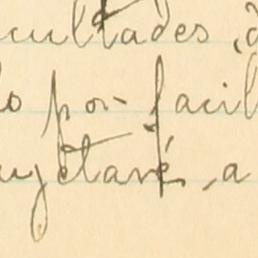 cultades,
lo por facil
ujetaré, a